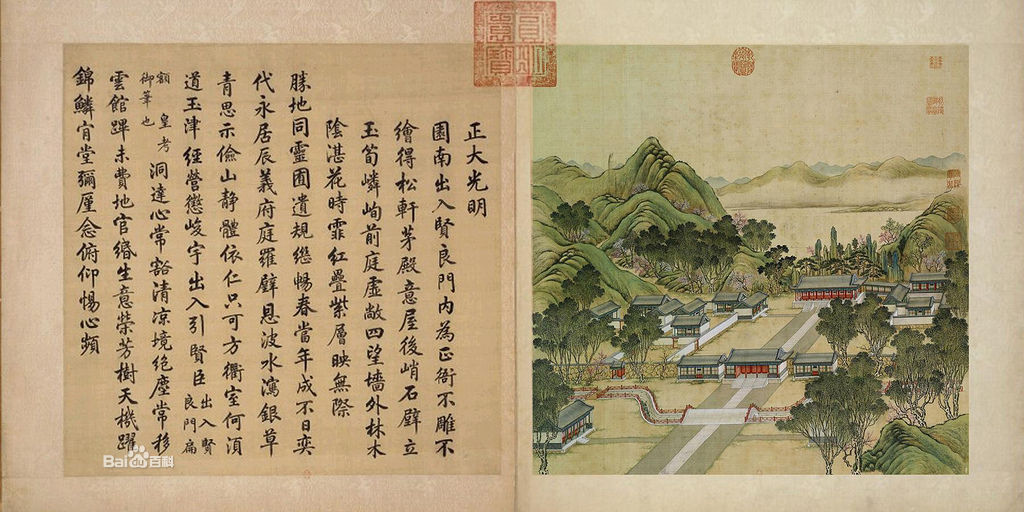 正大光明
園南出入賢良門內為正衙不雕不
繪得松軒茅殿意屋後峭石壁立
玉筍嶙峋前庭虛敞四望墻外林木
陰湛花時霏紅疊紫層映無際
勝地同靈囿遺規繼暢春當年成不日奕
代永居辰義府庭羅璧恩波水瀉銀草
青思示儉山靜體依仁只可方衢室何須
道玉津經營懲峻宇出入引賢臣出入賢良門扁
額皇考御筆也洞達心常豁清涼境絕塵常移
雲館蹕未費地官緡生意榮芳樹天機躍
錦鱗肯堂彌厪念俯仰惕心頻
Bai百科